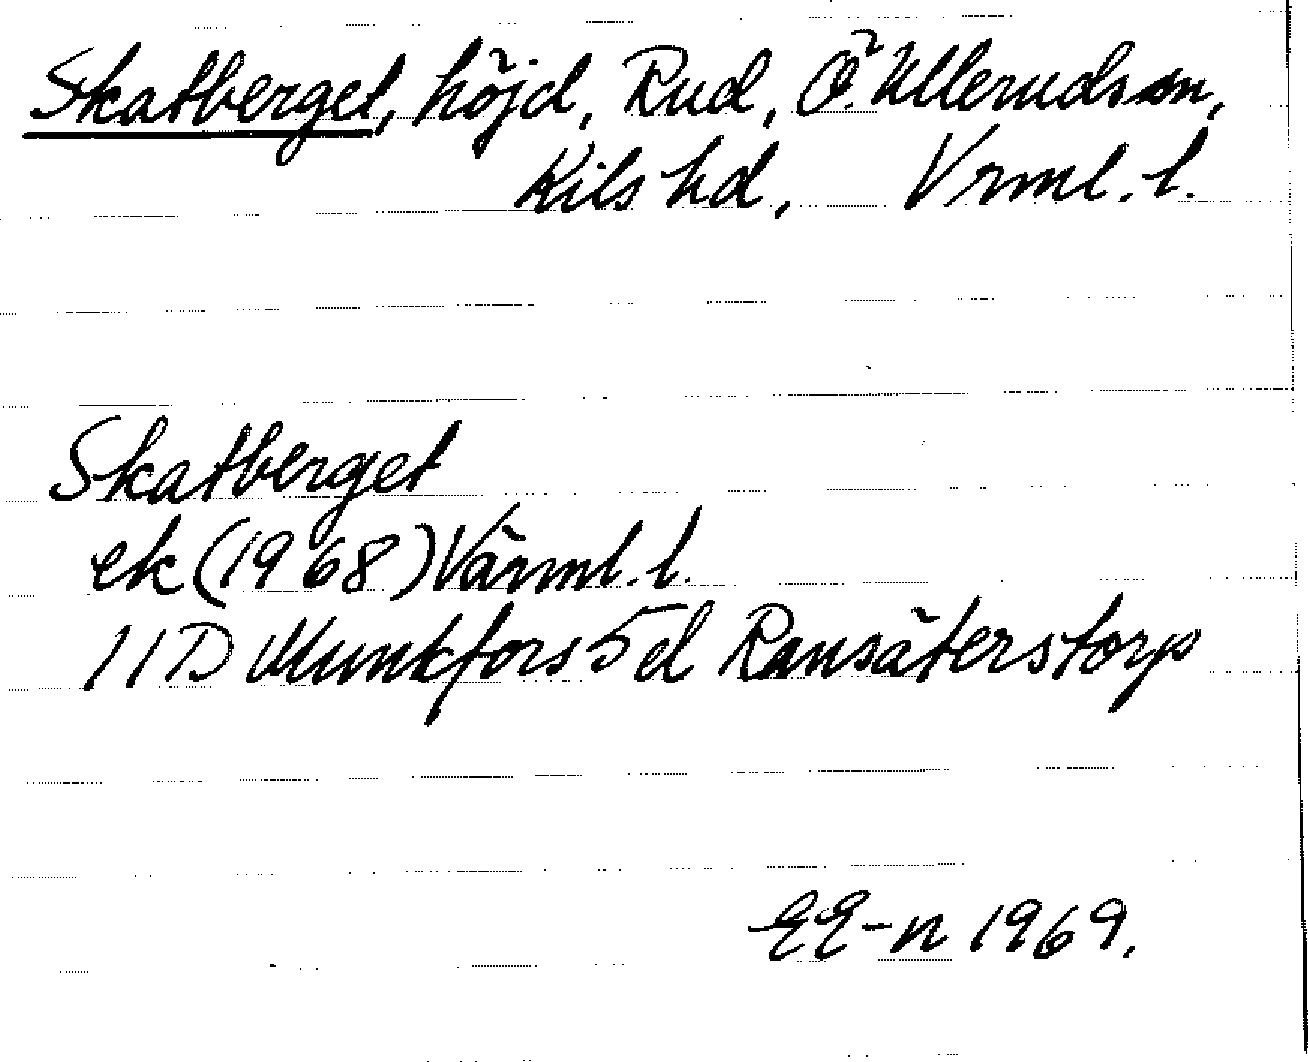 Skatberget, höjd, Rud, Ö. Ullerudssn,
Kils hd, Vrml. l.
Skatberget
ek (1968) Värml. l.
11D Munkfors 5 d Ransäterstorp
EE-n 1969.